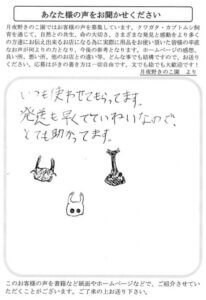 あなた様の声をお聞かせください
月夜野きのこ園ではお客様の声を募集しています。クワガタ・カブトムシ飼
育を通じて、自然との共生、命の大切さ、さまざまな発見と感動をより多く
の方達にお伝え出来るお店になる為に実際に商品をお使い頂いた皆様の率直
なお声が何よりの力となり、今後の参考となります。ホームページの感想、
良い所、悪い所、他のお店との違い等、どんな事でも結構ですので、お送り
下さい。応募はがきの書き方は一切自由です。文でも絵でも大歓迎です!
月夜野きのこ園 より
いつも使わせてもらってます。
発送も早くてていねいなので、
とても助かってます。
このお客様の声を書籍など紙面やホームページなどで、ご紹介させてい
ただくことがございます。ご了承の上お送り下さい。